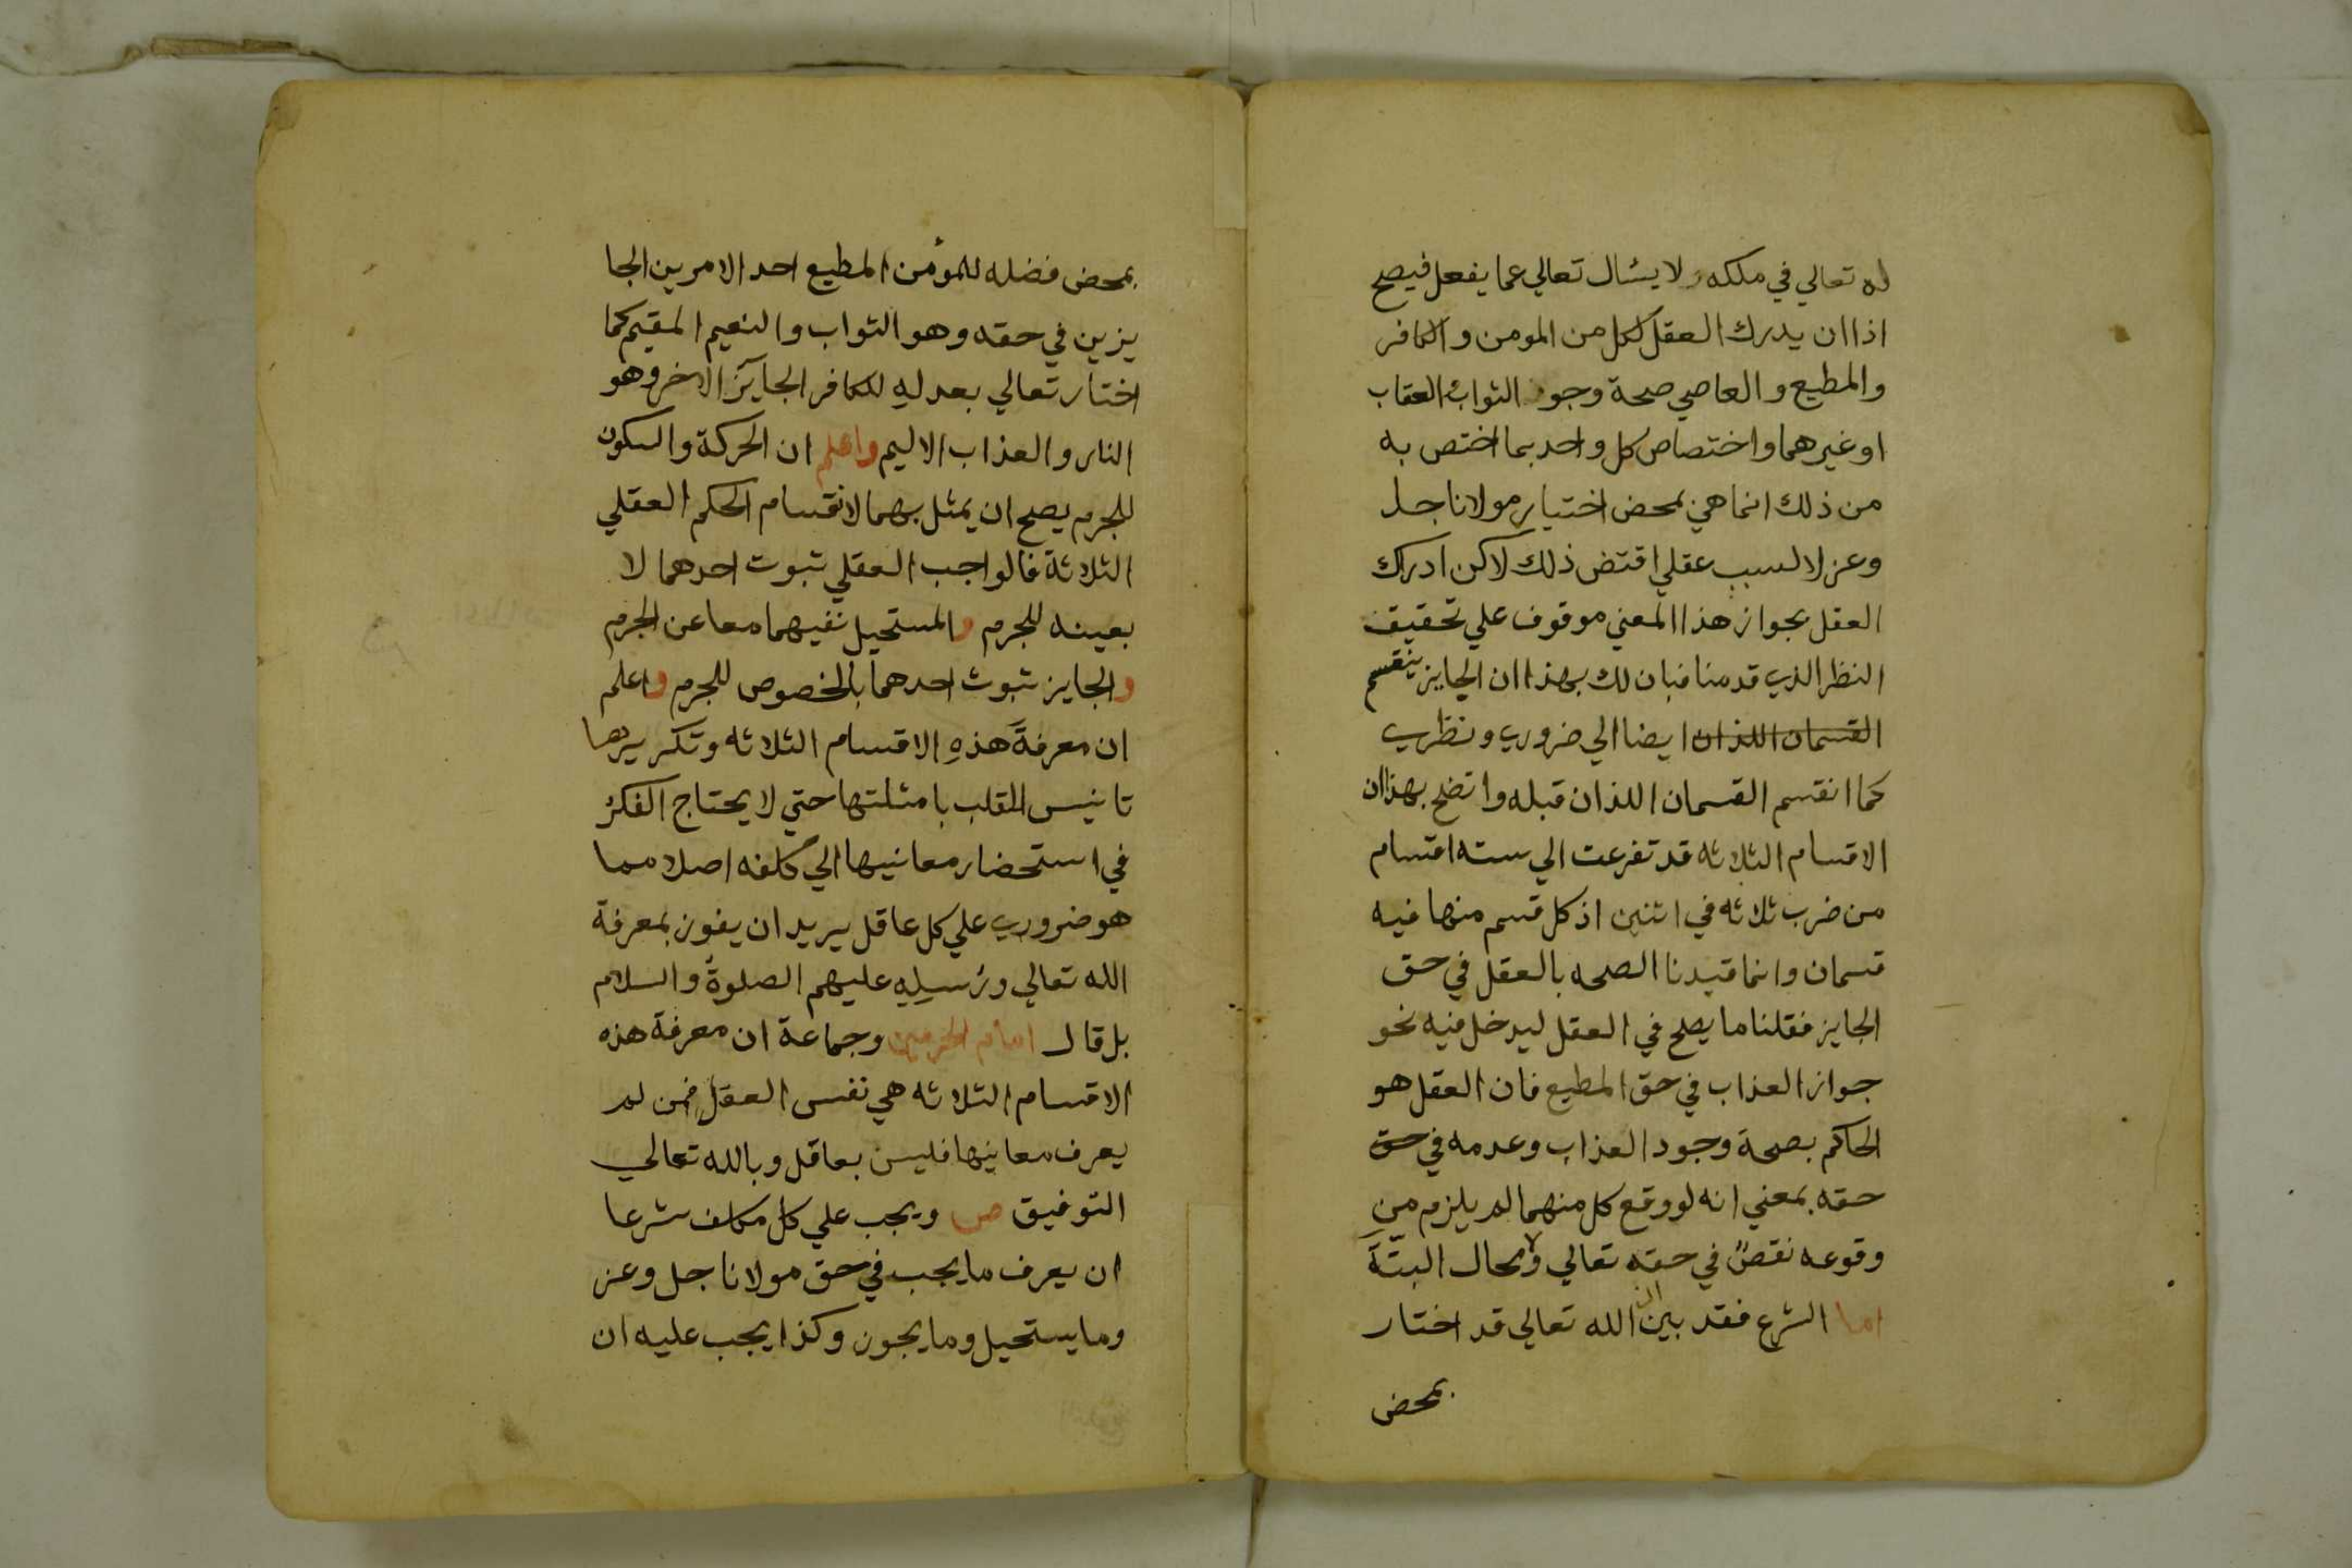 له تعالي في ملكه ولا يسئال تعالي عما يفعل فيصح
اذا ان يدرك العقل لكل من المومن والكافر
والمطيع والعاصي صحة وجود الثواب والعقاب
او غيرهما واختصاص كل واحد بما اختص به
من ذلك انما هي بمحض اختيار مولانا جل
وعز لا لسبب عقلي اقتض ذلك لاكن ادراك
العقل بجواز هذا المعني موقوف علي تحقيق
النظر الذي قدمنا فبان لك بهذا ان الجايز ينقسم
القسمان اللذان ايضا الي ضروري ونظري
كما انقسم القسمان اللذان قبله واتضح بهذا ان
الاقسام الثلاثه قد تفرعت الي سته اقسام
من ضرب ثلاثه في اثنين اذ كل قسم منها فيه
قسمان وانما قيدنا الصحه بالعقل في حق
الجايز فقلنا ما يصح في العقل ليدخل فيه نحو
جواز العذاب في حق المطيع فان العقل هو
الحاكم بصحة وجود العذاب وعدمه في حق
حقه بمعني انه لو وقع كل منهما لم يلزم من
وقوعه نقصٌ في حقه تعالي ولا محال البتّة
اما الشرع فقد بين ان الله تعالي قد اختار
بمحض
بمحض فضله للمؤمن المطيع احد الامرين الجا
يزين في حقه وهو الثواب والنعيم المقيم كما
اختار تعالي بعدلهِ للكافر الجايز الاخر وهو
النار والعذاب الاليم واعلم ان الحركة والسكون
للجرم يصح ان يمثل بهما لانقسام الحكم العقلي
الثلاثة فالواجب العقلي ثبوت احدهما لا
بعينه للجرم والمستحيل نفيهما معا عن الجرم
والجايز ثبوت احدهما بالخصوص للجرم واعلم
ان معرفةَ هذهِ الاقسام الثلاثه وتكريرها
تانيس القلب بامثلتها حتي لا يحتاج الفكرُ
في استحضار معانيها الي كلفه اصلا مما
هو ضروري علي كل عاقل يريد ان يفوز بمعرفة
الله تعالي ورُسلِهِ عليهم الصلوةُ والسلام
بل قال امام الحرمين وجماعة ان معرفة هذه
الاقسام الثلاثه هي نفس العقلِ فمن لم
يعرف معانيها فليس بعاقل وبالله تعالي
التوفيق ص ويجب علي كل مكلف شرعا
ان يعرف ما يجب في حق مولانا جل وعز
وما يستحيل وما يجوز وكذا يجب عليه ان